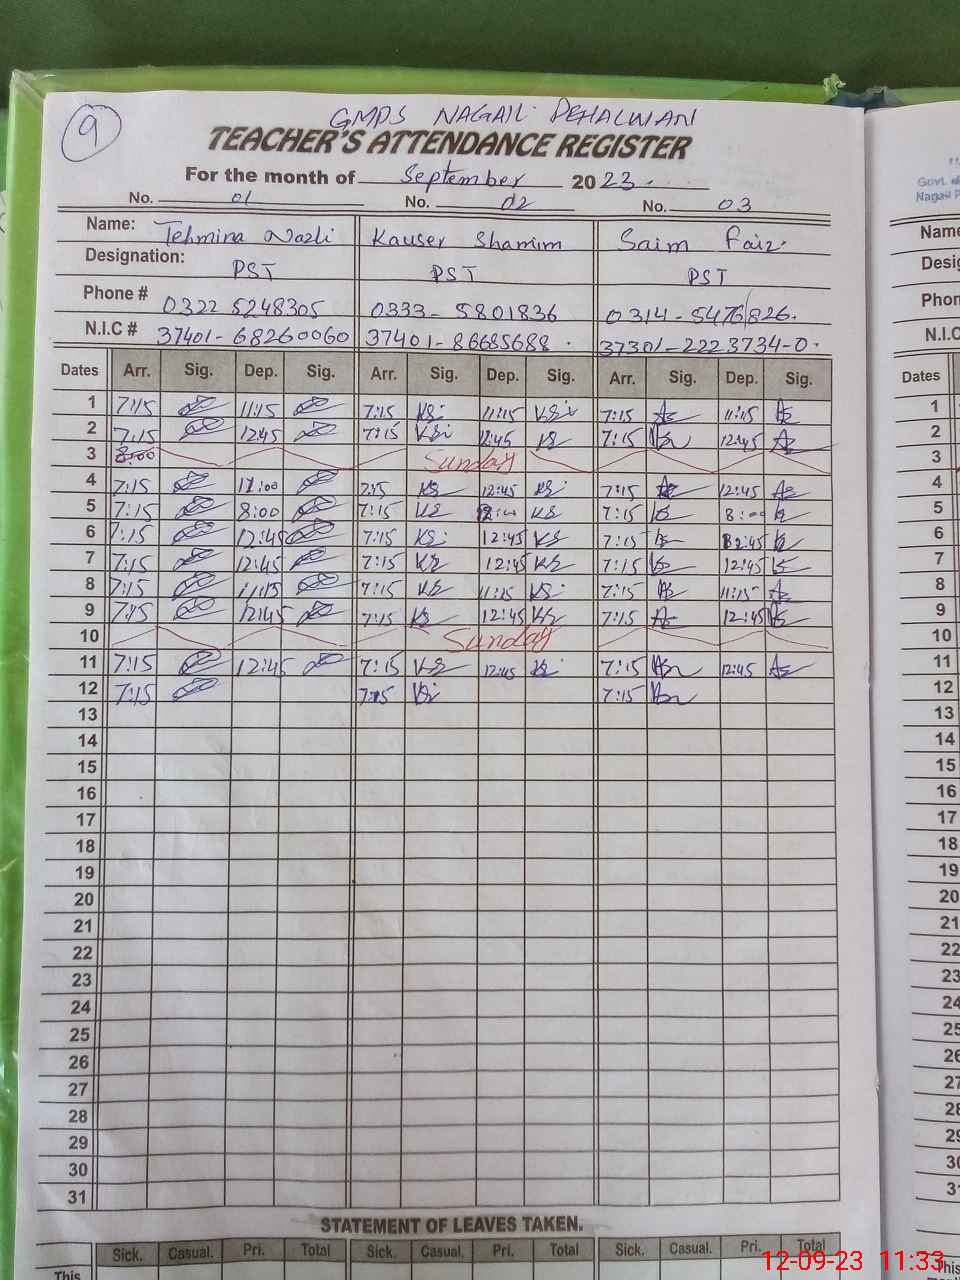 9
GMPS NAGAIL PEHALWAN
TEACHER'S ATTENDANCE REGISTER
For the month of September 2023
No. 01 No. 02 No. 03
Name: Tehmina Nazli Kauser Shamim Saim Faiz
Designation: PST PST PST
Phone # 0322 5248305 0333-5801836 0314-5476826
N.I.C # 37401-68260060 37401-86685688 37301-2223734-0
Dates Arr. Sig. Dep. Sig. Arr. Sig. Dep. Sig. Arr. Sig. Dep. Sig.
1 7:15 11:15 7:15 11:15 7:15 11:15
2 7:15 12:45 7:15 12:45 7:15 12:45
3 8:00 Sunday
4 7:15 7:15 12:45 7:15 12:45
5 7:15 8:00 7:15 7:15 8:00
6 7:15 12:45 7:15 12:45 7:15 12:45
7 7:15 12:45 7:15 12:45 7:15 12:45
8 7:15 11:15 7:15 11:15 7:15 11:15
9 7:15 12:45 7:15 12:45 7:15 12:45
10 Sunday
11 7:15 12:45 7:15 12:45 7:15 12:45
12 7:15 7:15 7:15
13
14
15
16
17
18
19
20
21
22
23
24
25
26
27
28
29
30
31
STATEMENT OF LEAVES TAKEN.
Sick. Casual. Pri. Total Sick. Casual. Pri. Total Sick. Casual. Pri. Total
This
12-09-23 11:33
Govt.
Name
Phon
N.I.C
Dates
1
2
3
4
5
6
7
8
9
10
11
12
13
14
15
16
17
18
19
20
21
22
23
24
25
26
27
28
29
30
31
This